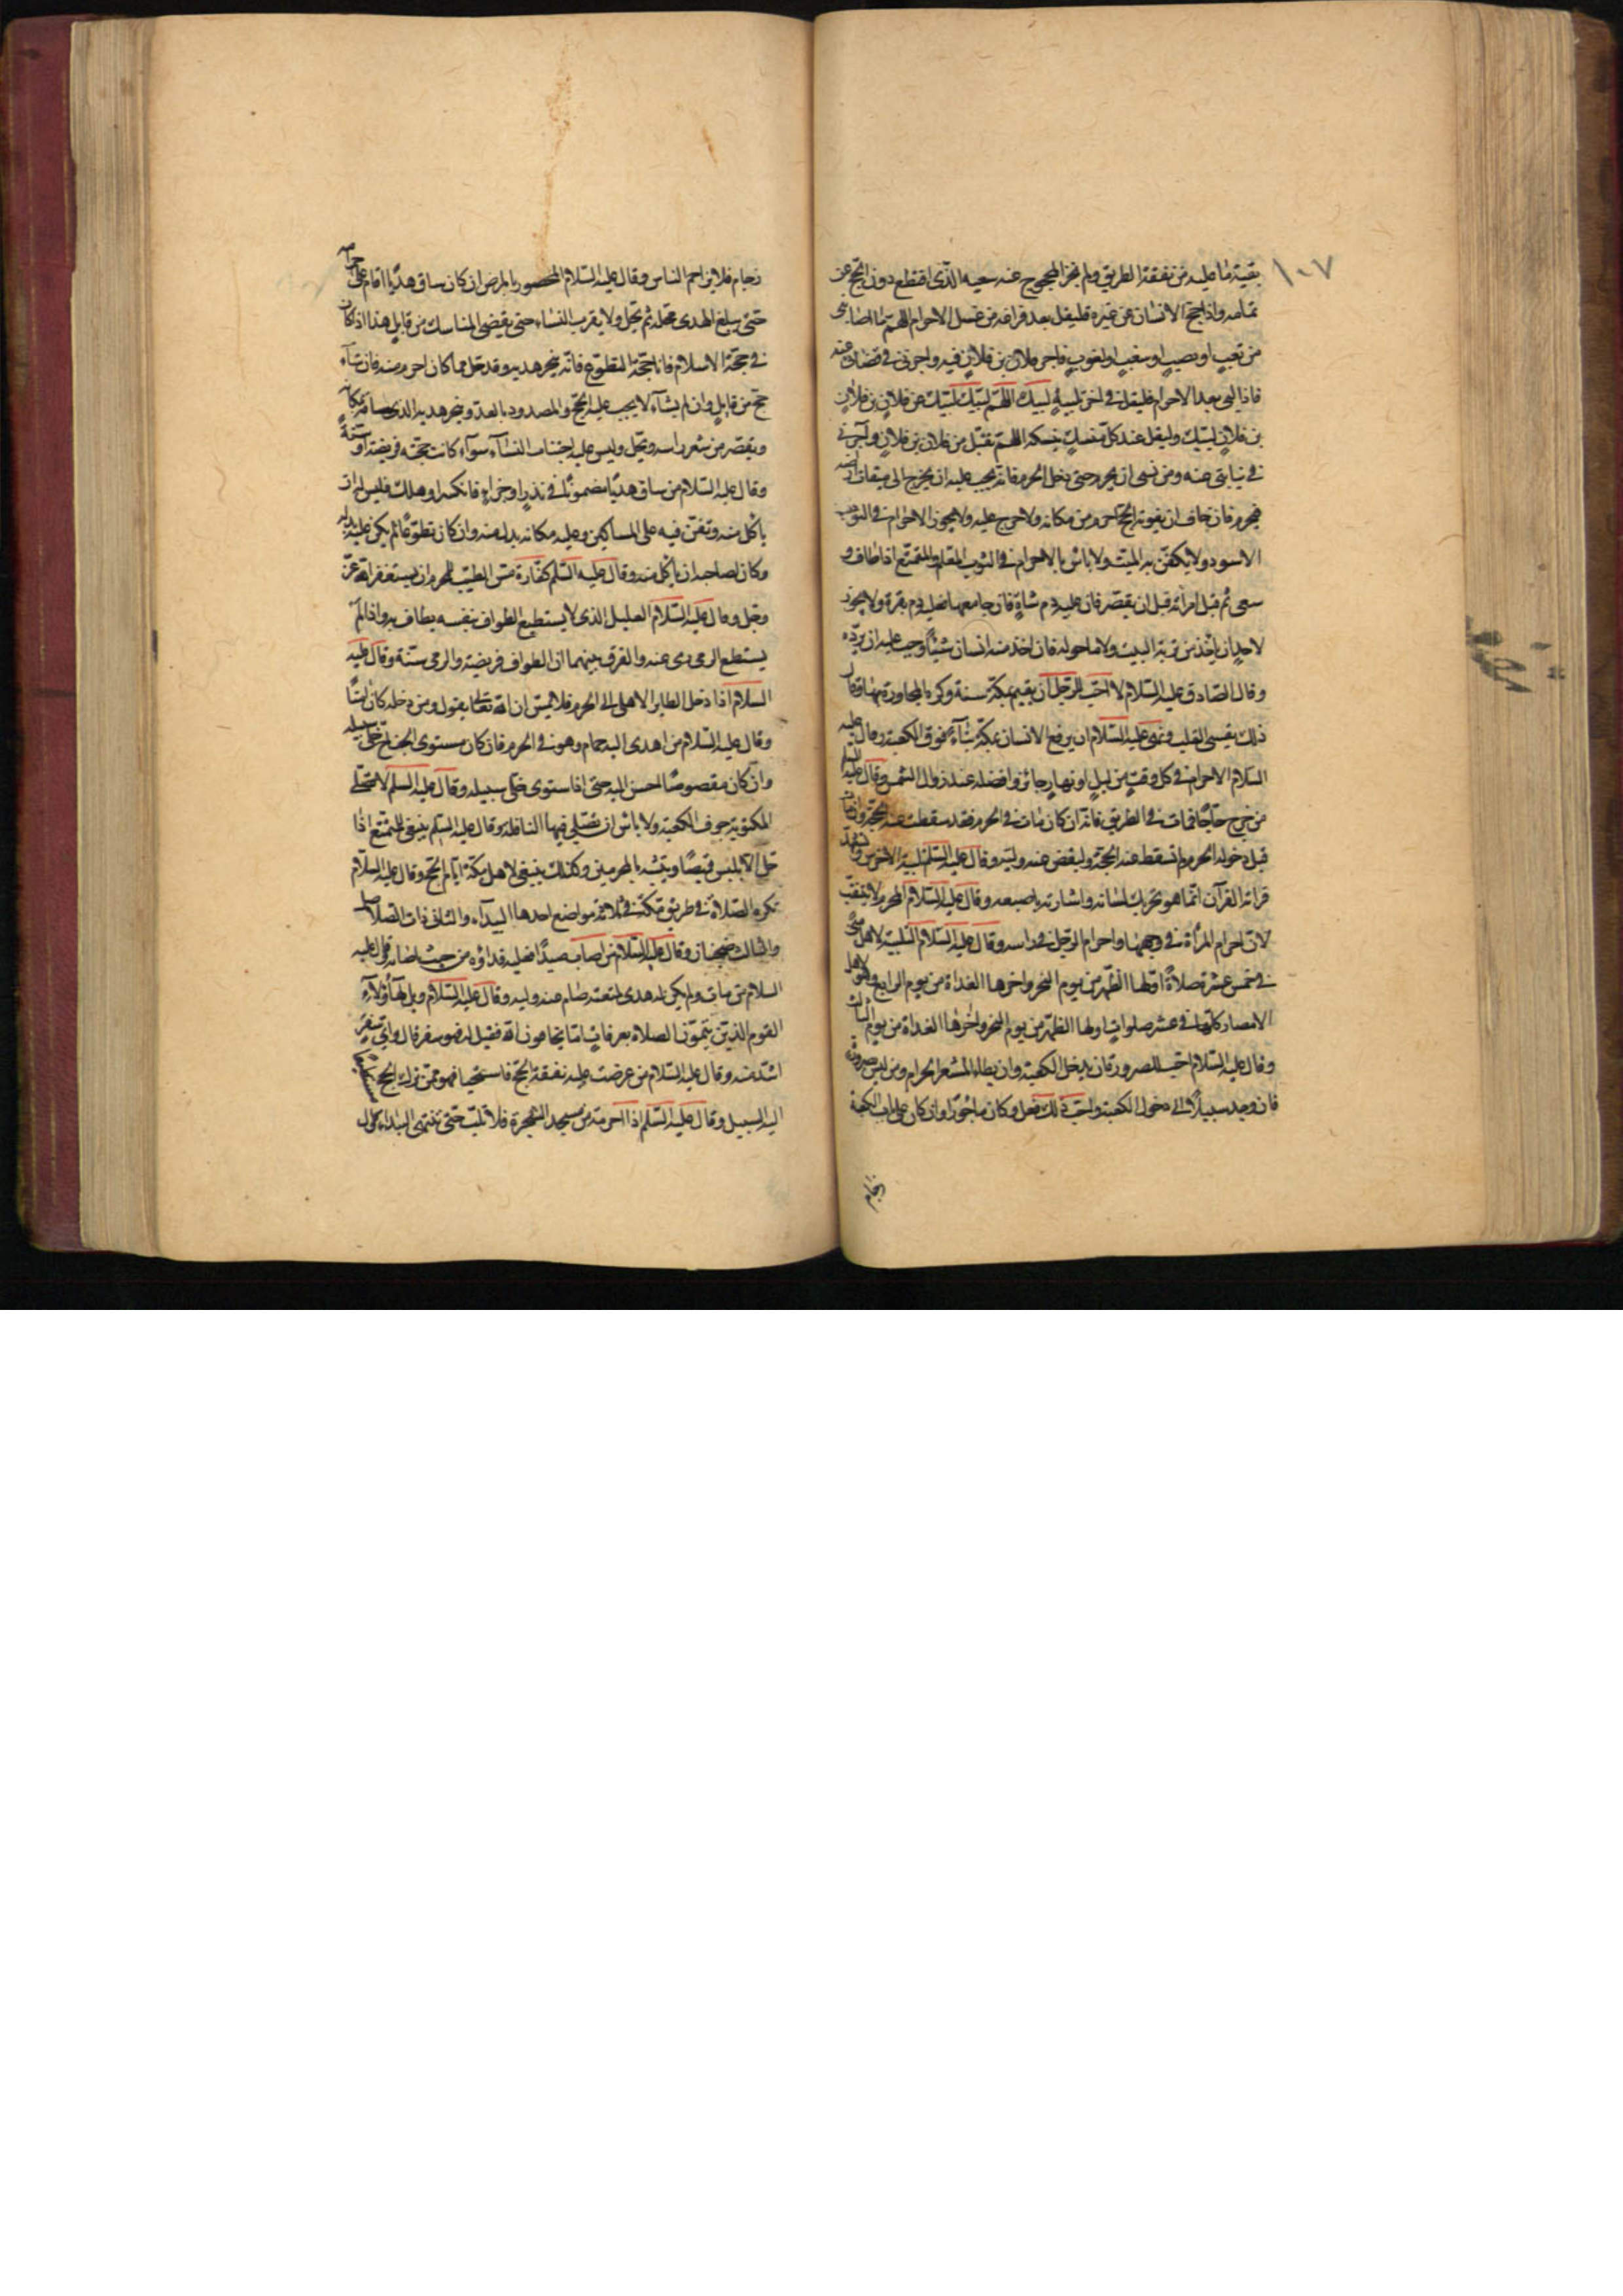 ١٠٧
بقية ما عليه من نفقة الطريق ولم يجز المحجوج عنه سعيه الذى اقتطع دون الحج عن
تمامه واذا حج الانسان عن غيره فليقل بعد فراغه من غسل الاحرام اللهم ما اصابنى
من تعب او نصب او سغب او لغوب فاجر فلان بن فلان فيه واجرنى فى قضائى عنه
فاذا لبى بعد الاحرام فليقل فى اخر تلبيته لبيك اللهم لبيك لبيك عن فلان بن فلان
بن فلان لبيك وليقل عند كل منسك ينسكه اللهم تقبل من فلان بن فلان وآجرنى
فى نيابتى عنه ومن نسى ان يحرم حتى دخل الحرم فانه يجب عليه ان يخرج الى ميقات ارضه
فيحرم فان خاف ان يفوته الحج احرم من مكانه ولا حرج عليه ولا يجوز الاحرام فى الثوب
الاسود ولا يكفن به الميت ولا باس بالاحرام فى الثوب المعلم والمتمتع اذا طاف و
سعى ثم قبل امرأته قبل ان يقصر فان عليه دم شاة فان جامعها فعليه دم بقرة ولا يجوز
لاحد ان ياخذ من تربة البيت ولا ما حوله فان اخذ منه انسان شيئا وجب عليه ان يرده
وقال الصادق عليه السلام لا احب للرجل ان يقيم بمكة سنة وكره المجاورة بها وقال
ذلك يقسى القلب ونهى عليه السلام ان يرفع الانسان بمكة بناء فوق الكعبة وقال عليه
السلام الاحرام فى كل وقت من ليل او نهار جائز وافضله عند زوال الشمس وقال عليه السلام
من خرج حاجا فمات فى الطريق فانه ان كان مات فى الحرم فقد سقطت عنه الحجة وان مات
قبل دخوله الحرم لم تسقط عنه الحجة وليقض عنه وليه وقال عليه السلم تلبية الاخرس وتشهده
قراته القرآن انما هو تحريك لسانه واشارته باصبعه وقال عليه السلام المحرم لا يتنقب
لان احرام المرأة فى وجهها واحرام الرجل فى راسه وقال عليه السلام التلبية لاهل منى
فى خمس عشرة صلاة اولها الظهر من يوم النحر واخرها الغداة من يوم الرابع ولاهل
الامصار كلها فى عشر صلوات اولها الظهر من يوم النحر واخرها الغداة من يوم الثالث
وقال عليه السلام احب للصرورة ان يدخل الكعبة وان يطا المشعر الحرام ومن ليس صرورة
فان وجد سبيلا الى دخول الكعبة واحب ذلك فعل وكان ماجورا وان كان على باب الكعبة
زحام
زحام فلا يزاحم الناس وقال عليه السلام المحصور بالمرض ان كان ساق هديا اقام على احرامه
حتى يبلغ الهدى محله ثم يحل ولا يقرب النساء حتى يقضى المناسك من قابل هذا اذا كان
فى حجة الاسلام فاما حجة التطوع فانه ينحر هديه وقد حل مما كان احرم منه فان شاء
حج من قابل وان لم يشاء لا يجب عليه الحج والمصدود بالعدو ينحر هديه الذى ساقه بمكانه
ويقصر من شعر راسه ويحل وليس عليه اجتناب النساء سواء كانت حجته فريضة او سنة
وقال عليه السلام من ساق هديا مضمونا فى نذر او جزاء فانكسر او هلك فليس له ان
ياكل منه وتفرق فيه على المساكين وعليه مكانه بدل منه وان كان تطوعا لم يكن عليه بدله
وكان لصاحبه ان ياكل منه وقال عليه السلم كفارة مس الطيب للمحرم ان يستغفر الله عز
وجل وقال عليه السلام العليل الذى لا يستطيع الطواف بنفسه يطاف به واذا لم
يستطع الرمى رمى عنه والفرق بينهما ان الطواف فريضة والرمى سنة وقال عليه
السلام اذا دخل الطاير الاهلى الى الحرم فلا يمس ان الله تعالى يقول ومن دخله كان امنا
وقال عليه السلام من اهدى اليه حمام وهو فى الحرم فان كان مستوى الجناح خلى سبيله
وان كان مقصوصا احسن اليه حتى اذا استوى خلى سبيله وقال عليه السلم لا تصلى
المكتوبة جوف الكعبة ولا باس ان تصلى فيها النافلة وقال عليه السلم ينبغى للمتمتع اذا
حل الا يلبس قميصا ويتشبه بالمحرمين وكذلك ينبغى لاهل مكة ايام الحج وقال عليه السلام
تكره الصلاة فى طريق مكة فى ثلاثة مواضع احدها البيداء والثانى ذات الصلاصل
والثالث ضجنان وقال عليه السلام من اصاب صيدا فعليه فداؤه من حيث اصابه وقال عليه
السلام من مات ولم يكن له هدى لمتعته صام عنه وليه وقال عليه السلام ويل لهؤلاء
القوم الذين يتمون الصلاة بعرفات اما يخافون الله فقيل له فهو سفر فقال واى سفر
اشد منه وقال عليه السلام من عرضت عليه نفقة الحج فاستحيا فهو ممن ترك الحج
اليه السبيل وقال عليه السلم اذا احرمت من مسجد الشجرة فلا تلب حتى تنتهى البيداء